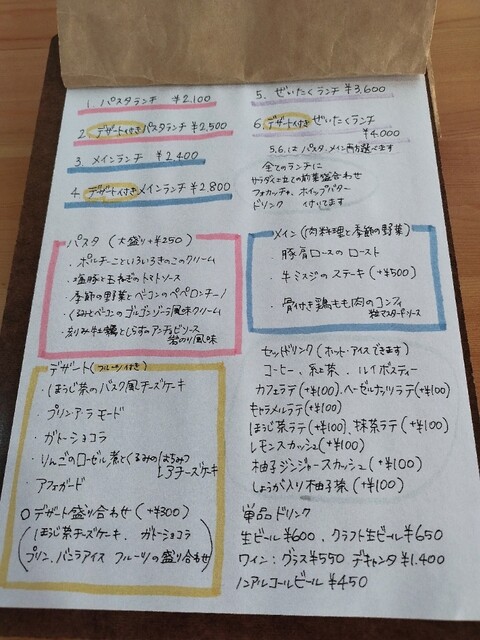 1. パスタランチ ¥2,100
2. デザート付きパスタランチ ¥2,500
3. メインランチ ¥2,400
4. デザート付きメインランチ ¥2,800
5. ぜいたくランチ ¥3,600
6. デザート付きぜいたくランチ
¥4,000
5.6.は パスタ、メイン両方選べます
全てのランチに
サラダ仕立ての前菜盛合わせ
フォカッチャ、ホイップバター
ドリンク 付いてます
パスタ (大盛り+¥250)
・ポルチーニといろいろきのこのクリーム
・塩豚と玉ねぎのトマトソース
・季節の野菜とベーコンのペペロンチーノ
・くるみとベーコンのゴルゴンゾーラ風味クリーム
・刻み牡蠣としらすのアンチョビソース
岩のり風味
メイン (肉料理と季節の野菜)
・豚肩ロースのロースト
・牛ミスジのステーキ (+¥500)
・骨付き鶏もも肉のコンフィ
粒マスタードソース
デザート (フルーツ付き)
・ほうじ茶のバスク風チーズケーキ
・プリンアラモード
・ガトーショコラ
・りんごのロゼル煮とくるみのはちみつ
レアチーズケーキ
・アフォガード
○デザート盛り合わせ (+¥300)
(ほうじ茶チーズケーキ、ガトーショコラ
プリン、バニラアイス フルーツの盛り合わせ)
セットドリンク (ホット・アイスできます)
コーヒー、紅茶、ルイボスティー
カフェラテ (+¥100)、ヘーゼルナッツラテ(+¥100)
キャラメルラテ(+¥100)
ほうじ茶ラテ(+¥100)、抹茶ラテ(+¥100)
レモンスカッシュ(+¥100)
柚子ジンジャースカッシュ(+¥100)
しょうが入り柚子茶 (+¥100)
単品ドリンク
生ビール¥600、クラフト生ビール¥650
ワイン:グラス¥550 デキャンタ¥1,400
ノンアルコールビール ¥450